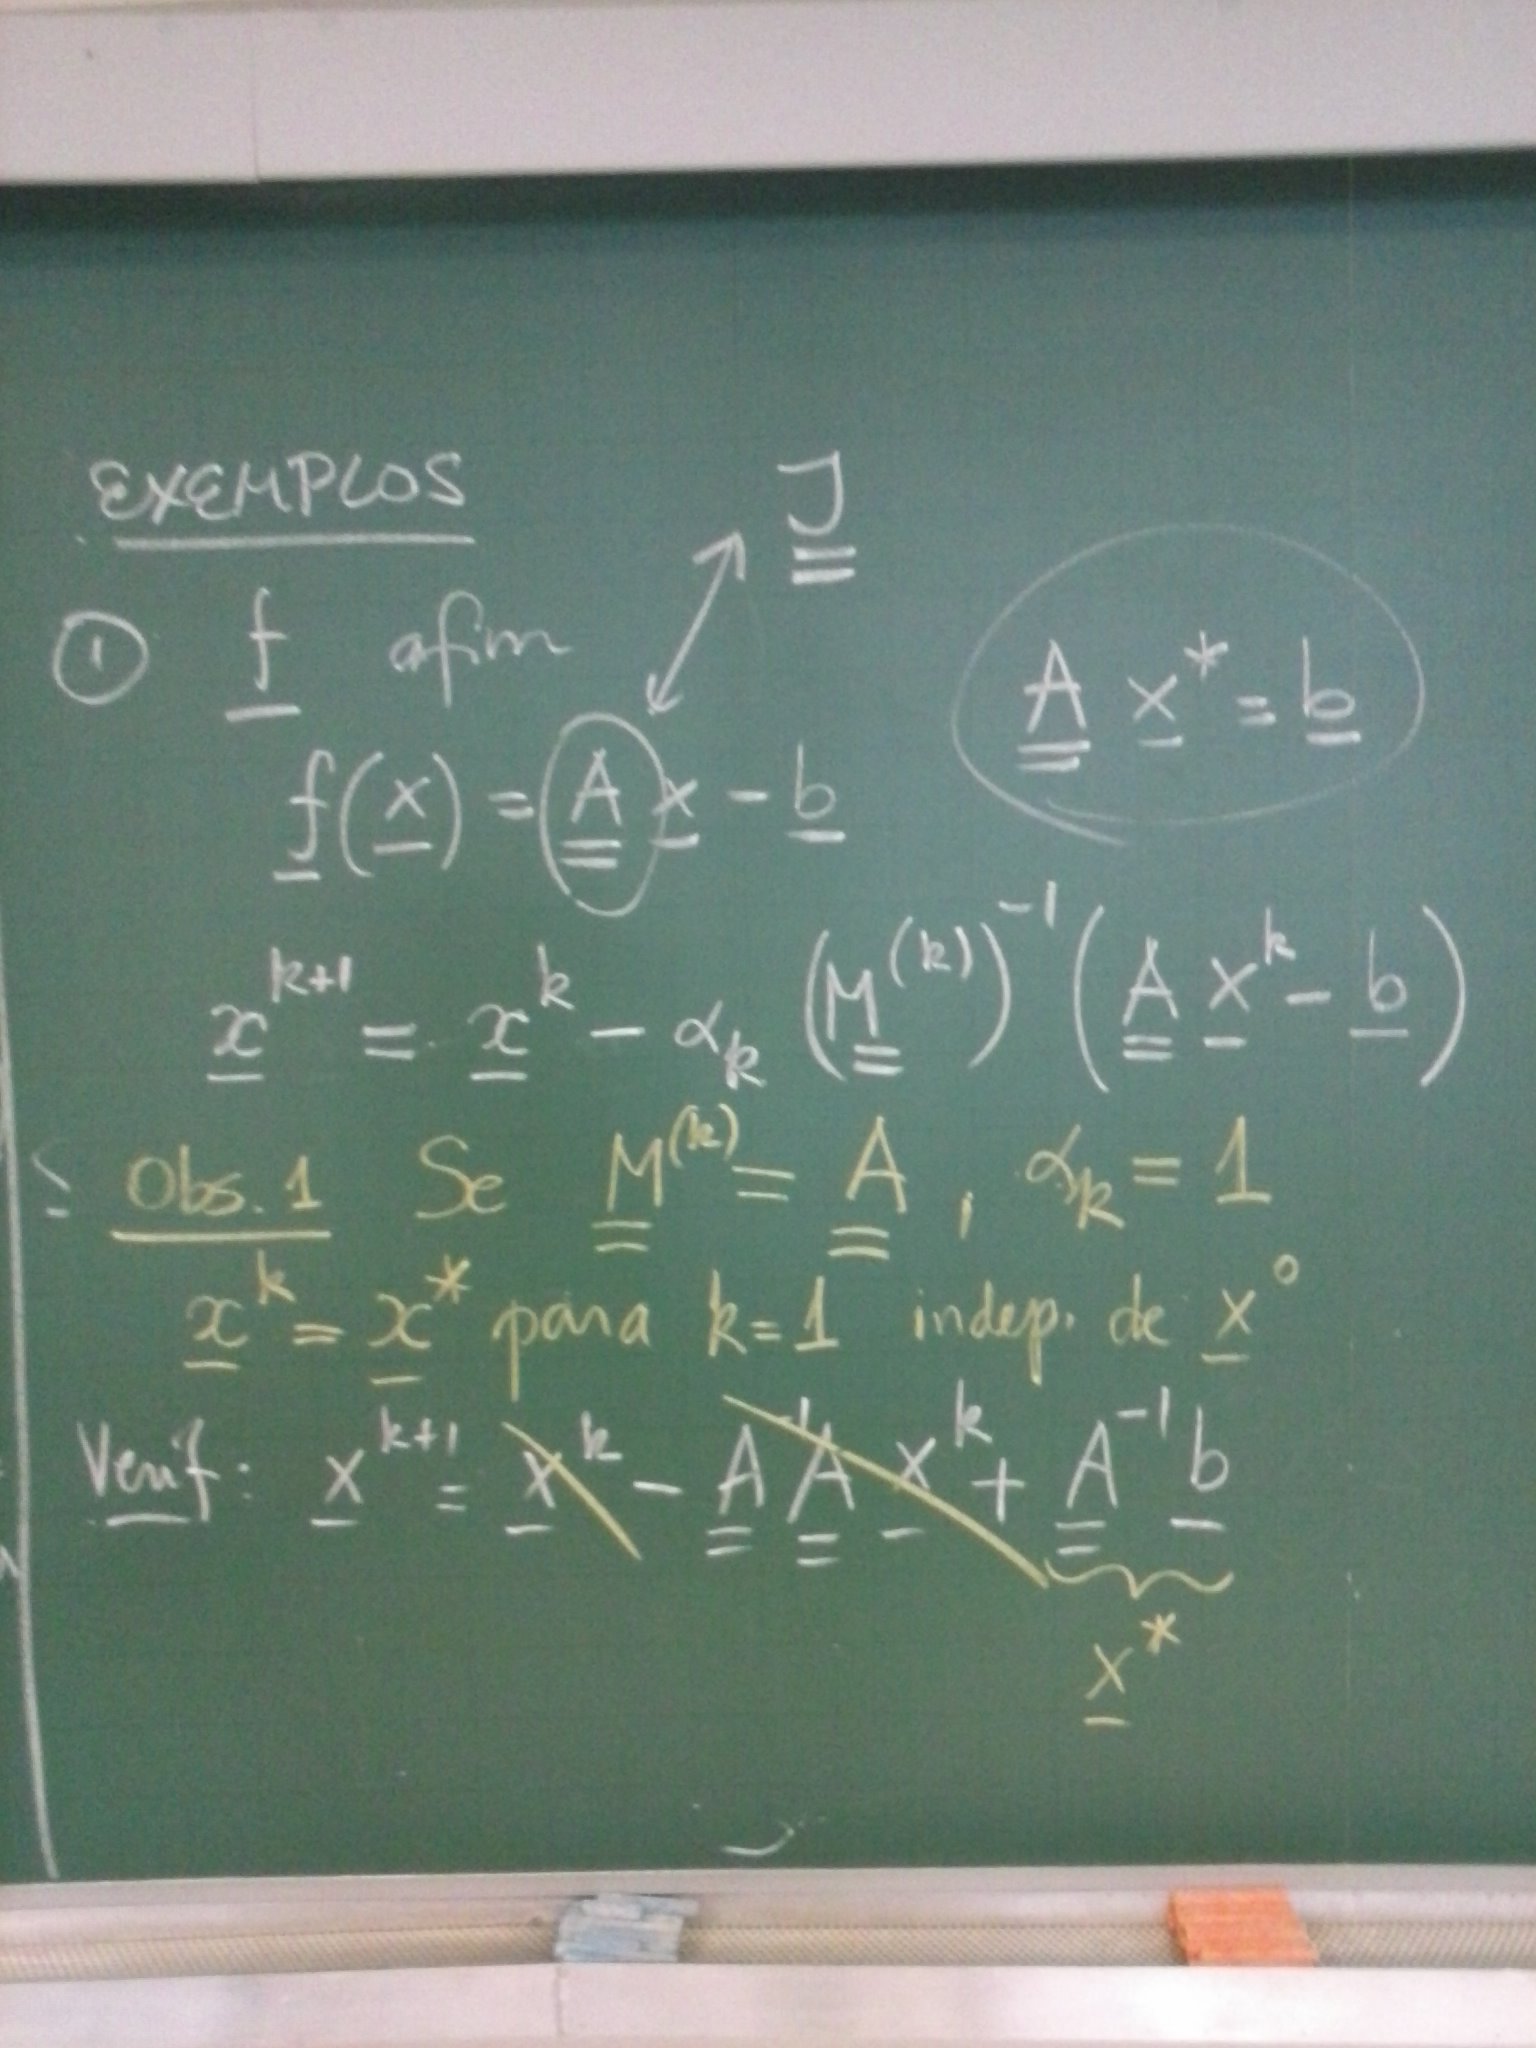 EXEMPLOS
J
① f afim
A x* = b
f(x) = A x - b
x^{k+1} = x^k - α_k (M^{(k)})^{-1} (A x^k - b)
Obs. 1 Se M^{(k)} = A, α_k = 1
x^k = x* para k=1 indep. de x^0
Verif: x^{k+1} = x^k - A^{-1} A x^k + A^{-1} b
x*